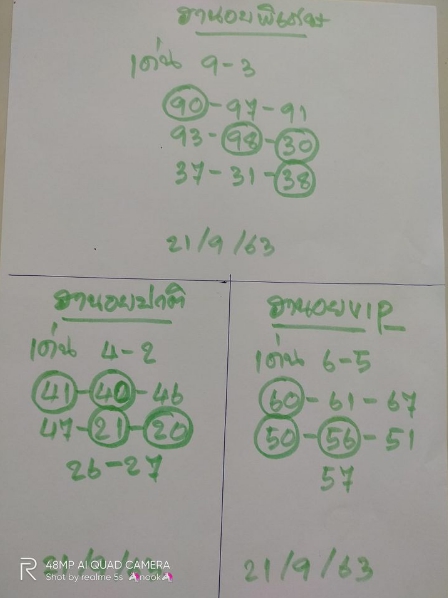 ฮานอยพิเศษ
เด่น 9-3
90-97-91
93-98-30
37-31-38
21/9/63
ฮานอยปกติ
เด่น 4-2
41-40-46
47-21-20
26-27
21/9/63
ฮานอยVIP
เด่น 6-5
60-61-67
50-56-51
57
21/9/63
48MP AI QUAD CAMERA
Shot by realme 5s AnooKA